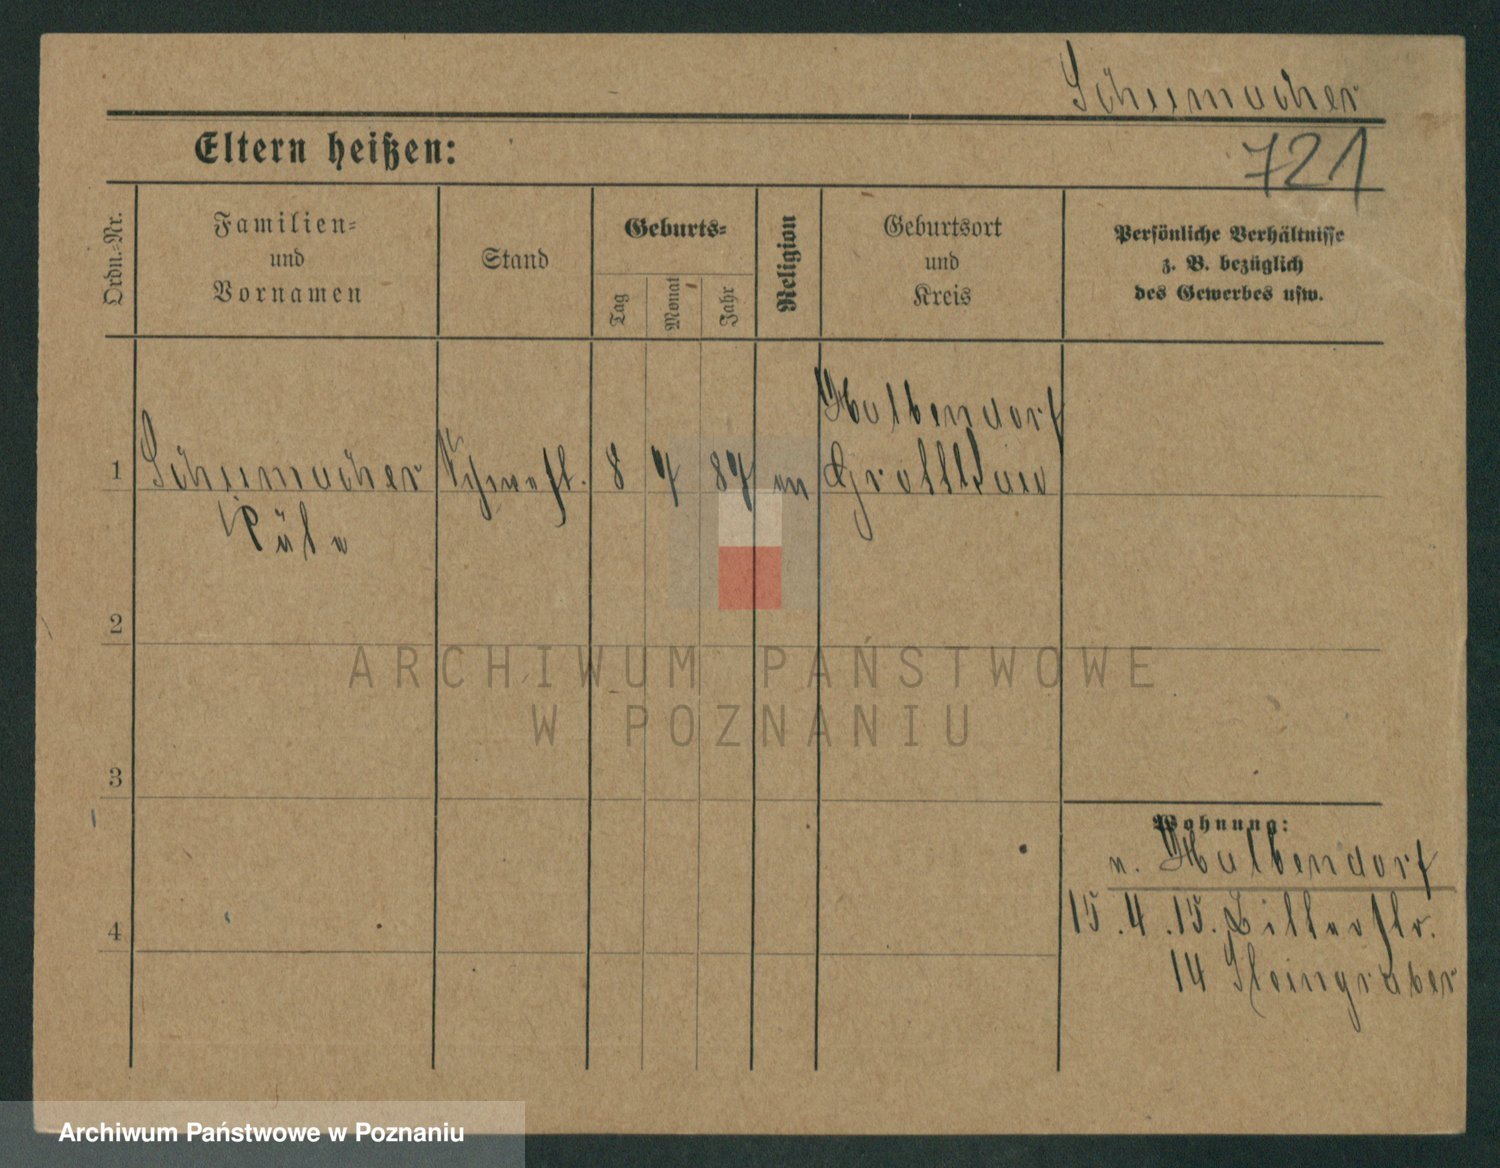 Schumacher
Eltern heißen:
721
Ordn.-Nr.
Familien-
und
Vornamen
Stand
Geburts-
Tag
Monat
Jahr
Religion
Geburtsort
und
Kreis
Persönliche Verhältnisse
z. B. bezüglich
des Gewerbes usw.
Halbendorf
1 Schumacher 8 7 87 Grottkau
2
3
4
Wohnung:
n. Halbendorf
15.4.15.
14 Steingräber
ARCHIWUM PAŃSTWOWE
W POZNANIU
Archiwum Państwowe w Poznaniu